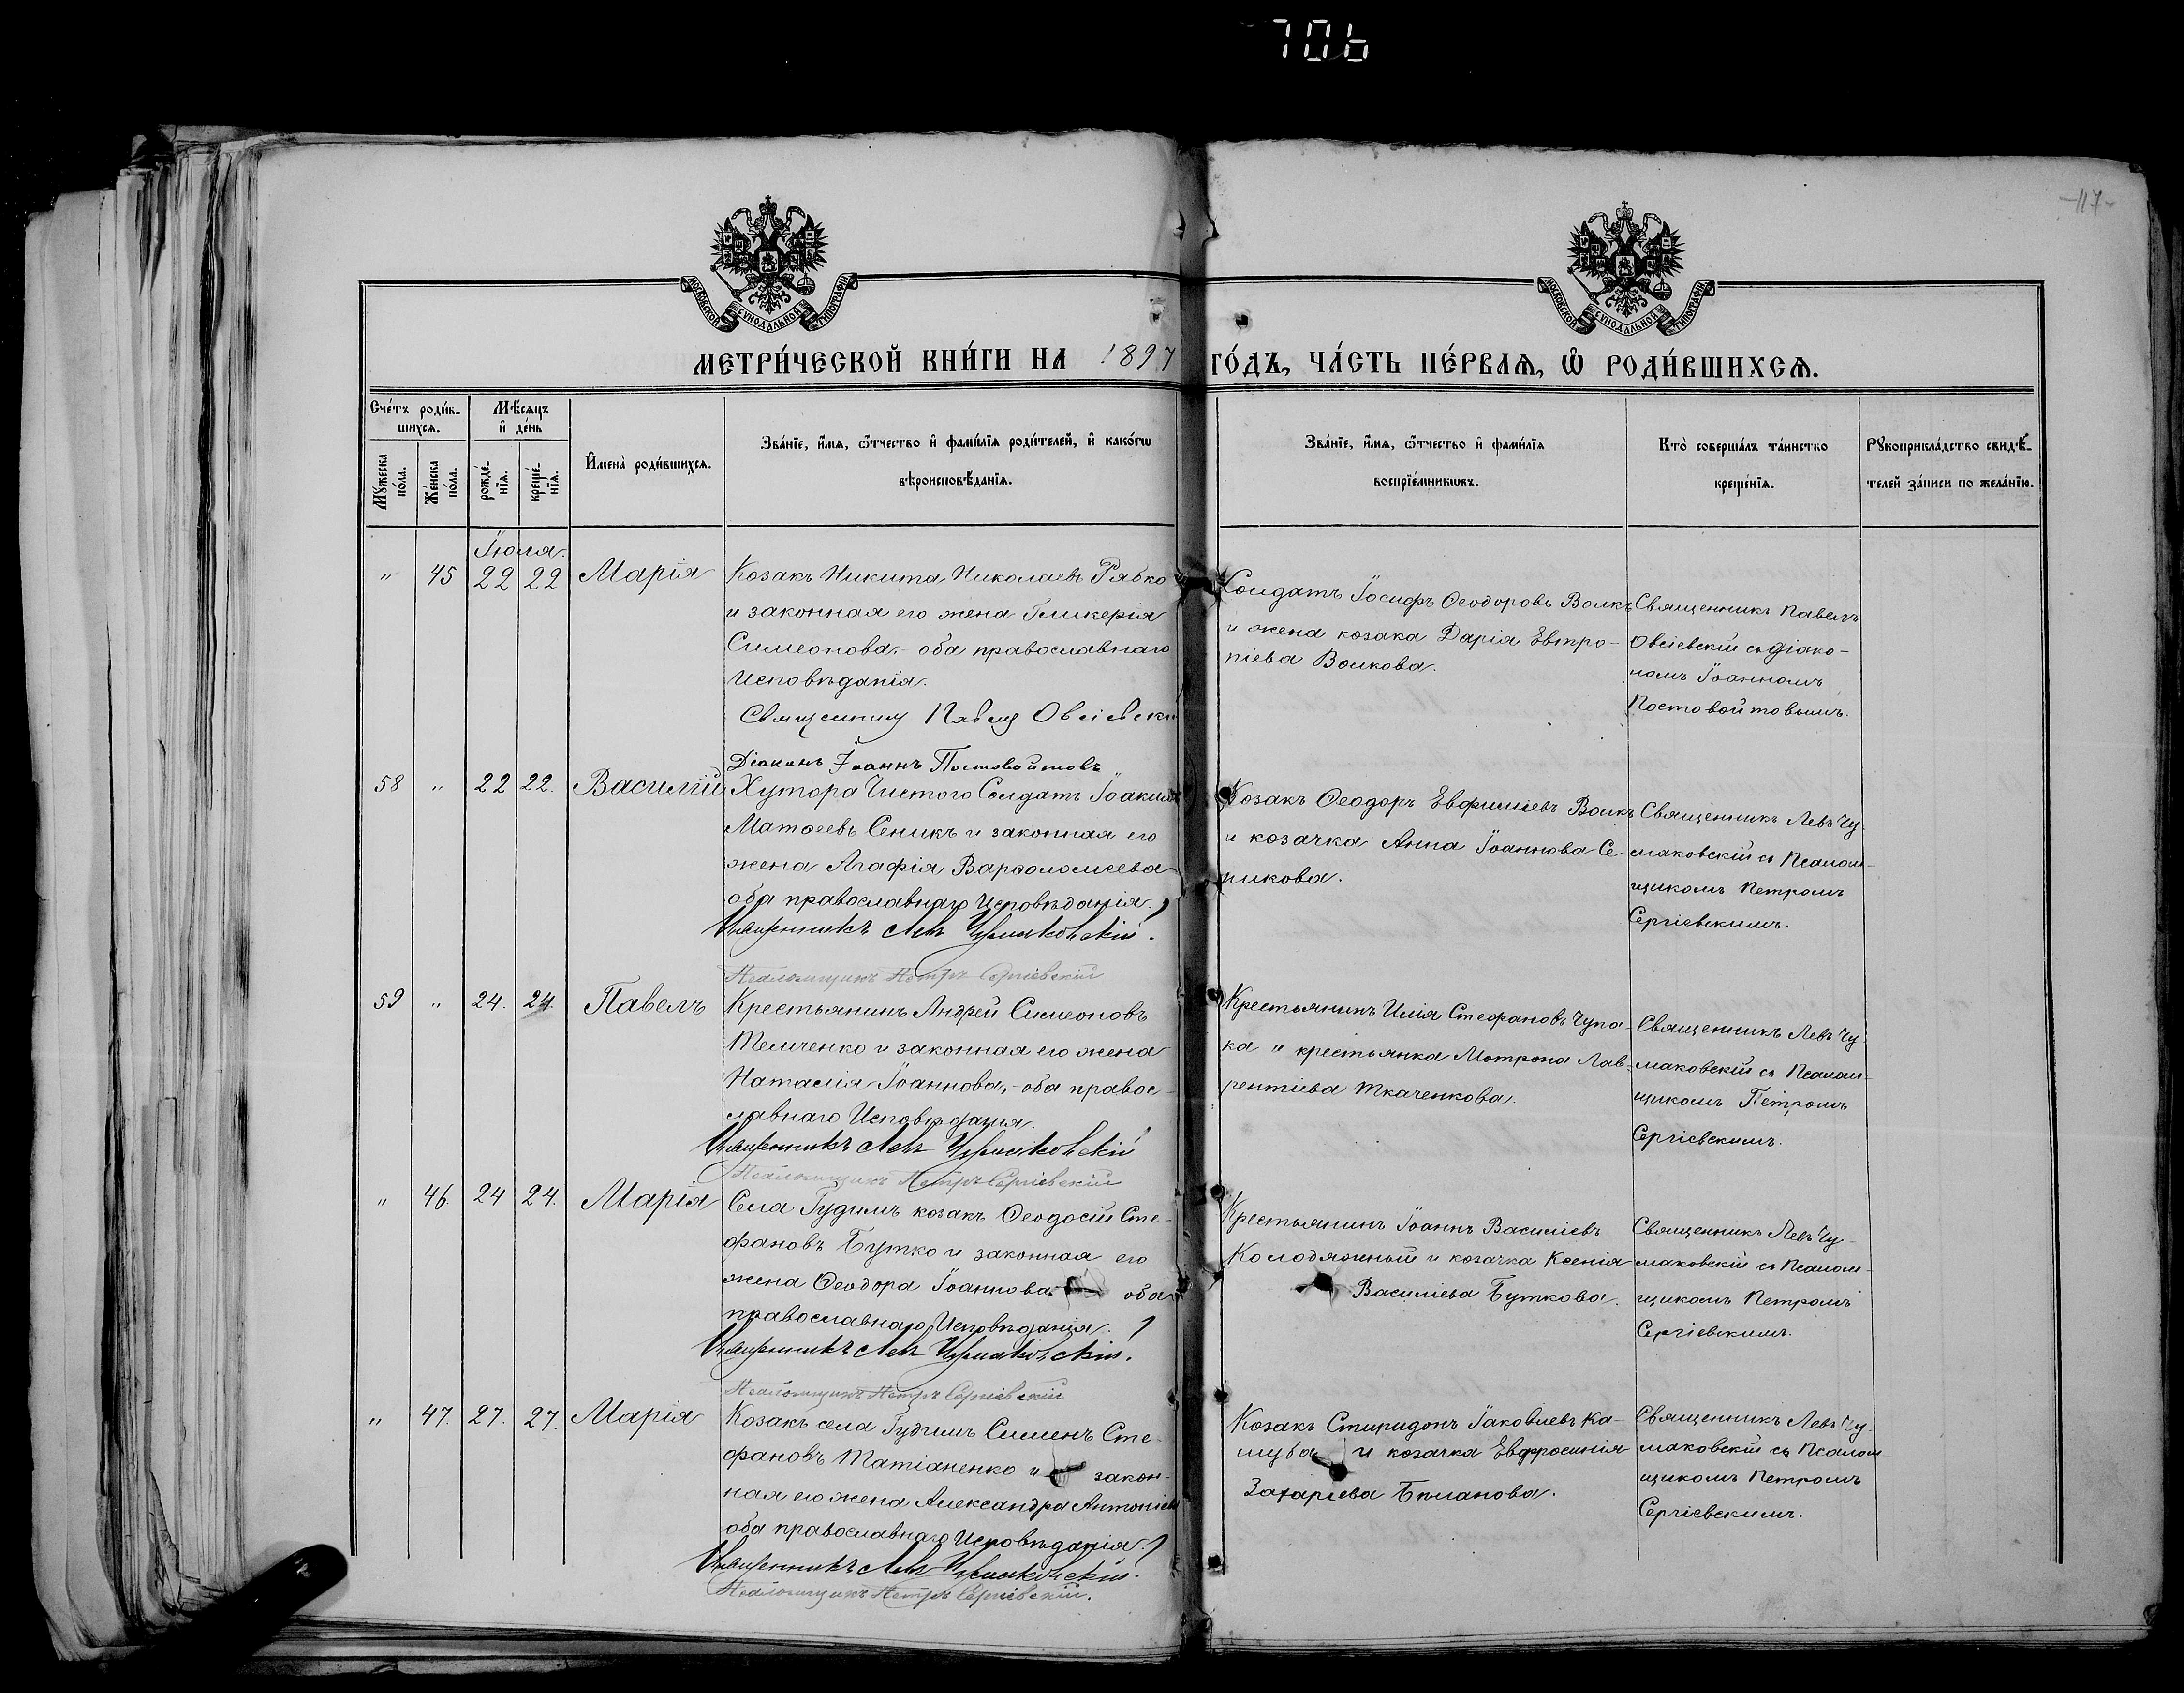 706
-117-
МОСКОВСКОЙ СѴНОДАЛЬНОЙ ТИПОГРАФІИ
МОСКОВСКОЙ СѴНОДАЛЬНОЙ ТИПОГРАФІИ
МЕТРИ́ЧЕСКОЙ КНИ́ГИ НА 1897 ГО́ДЪ, ЧА́СТЬ ПЕ́РВАѦ, Ѽ РОДИ́ВШИХСѦ.
Сче́тъ роди́в-
шихсѧ.
Мѣ́сѧцъ
и҆ де́нь
Мꙋ́жеска
по́ла.
Же́нска
по́ла.
рожде́-
нїѧ.
креще́-
нїѧ.
И҆мена̀ роди́вшихсѧ.
Зва́нїе, и҆́мѧ, ѻ҆́тчество и҆ фами́лїѧ роди́телей, и҆ како́гѡ
вѣроисповѣ́данїѧ.
Зва́нїе, и҆́мѧ, ѻ҆́тчество и҆ фами́лїѧ
воспрїе́мникѡвъ.
Кто̀ соверша́лъ та́инство
креще́нїѧ.
Рꙋкоприкла́дство свидѣ́-
телей за́писи по жела́нїю.
Іюля.
" 45 22 22 Марія
Козакъ Никита Николаевъ Рябко
и законная его жена Гликерія
Симеонова,- оба православнаго
Исповѣданія.
Священникъ Павелъ Овсіевскій
Діаконъ Іоаннъ Постовойтовъ
Солдатъ Іосифъ Ѳеодоровъ Волкъ
и жена козака Дарія Евтро-
піева Волкова.
Священникъ Павелъ
Овсіевскій съ діако-
номъ Іоанномъ
Постовойтовымъ.
58 " 22 22. Василій
Хутора Чистого Солдатъ Іоакимъ
Матѳеевъ Сеникъ и законная его
жена Агафія Варѳоломеева
оба православнаго Исповѣданія.
Священникъ Левъ Чумаковскій.
Псаломщикъ Петръ Сергіевскій
Козакъ Ѳеодоръ Евфиміевъ Волкъ
и козачка Анна Іоаннова Се-
никова.
Священникъ Левъ Чу-
маковскій съ Псалом-
щикомъ Петромъ
Сергіевскимъ.
59 " 24. 24. Павелъ
Крестьянинъ Андрей Симеоновъ
Темченко и законная его жена
Наталія Іоаннова,- оба правос-
лавнаго Исповѣданія.
Священникъ Левъ Чумаковскій
Псаломщикъ Петръ Сергіевскій
Крестьянинъ Илія Стефановъ Чупа-
ка и крестьянка Мотрона Лав-
рентіева Ткаченкова.
Священникъ Левъ Чу-
маковскій съ Псалом-
щикомъ Петромъ
Сергіевскимъ.
" 46. 24 24. Марія
Села Гудимъ козакъ Ѳеодосій Сте-
фановъ Бутко и законная его
жена Ѳеодора Іоаннова оба
православнаго Исповѣданія.
Священникъ Левъ Чумаковскій.
Псаломщикъ Петръ Сергіевскій
Крестьянинъ Іоаннъ Василіевъ
Колодяжный и козачка Ксенія
Василіева Буткова.
Священникъ Левъ Чу-
маковскій съ Псалом-
щикомъ Петромъ
Сергіевскимъ.
" 47. 27. 27. Марія
Козакъ села Гудимъ Сименъ Сте-
фановъ Матіаненко и закон-
ная его жена Александра Антоніева
оба православнаго Исповѣданія.
Священникъ Левъ Чумаковскій.
Псаломщикъ Петръ Сергіевскій.
Козакъ Спиридонъ Іаковлевъ Ка-
и козачка Евфросинія
Захаріева Биланова.
Священникъ Левъ Чу-
маковскій съ Псалом
щикомъ Петромъ
Сергіевскимъ.